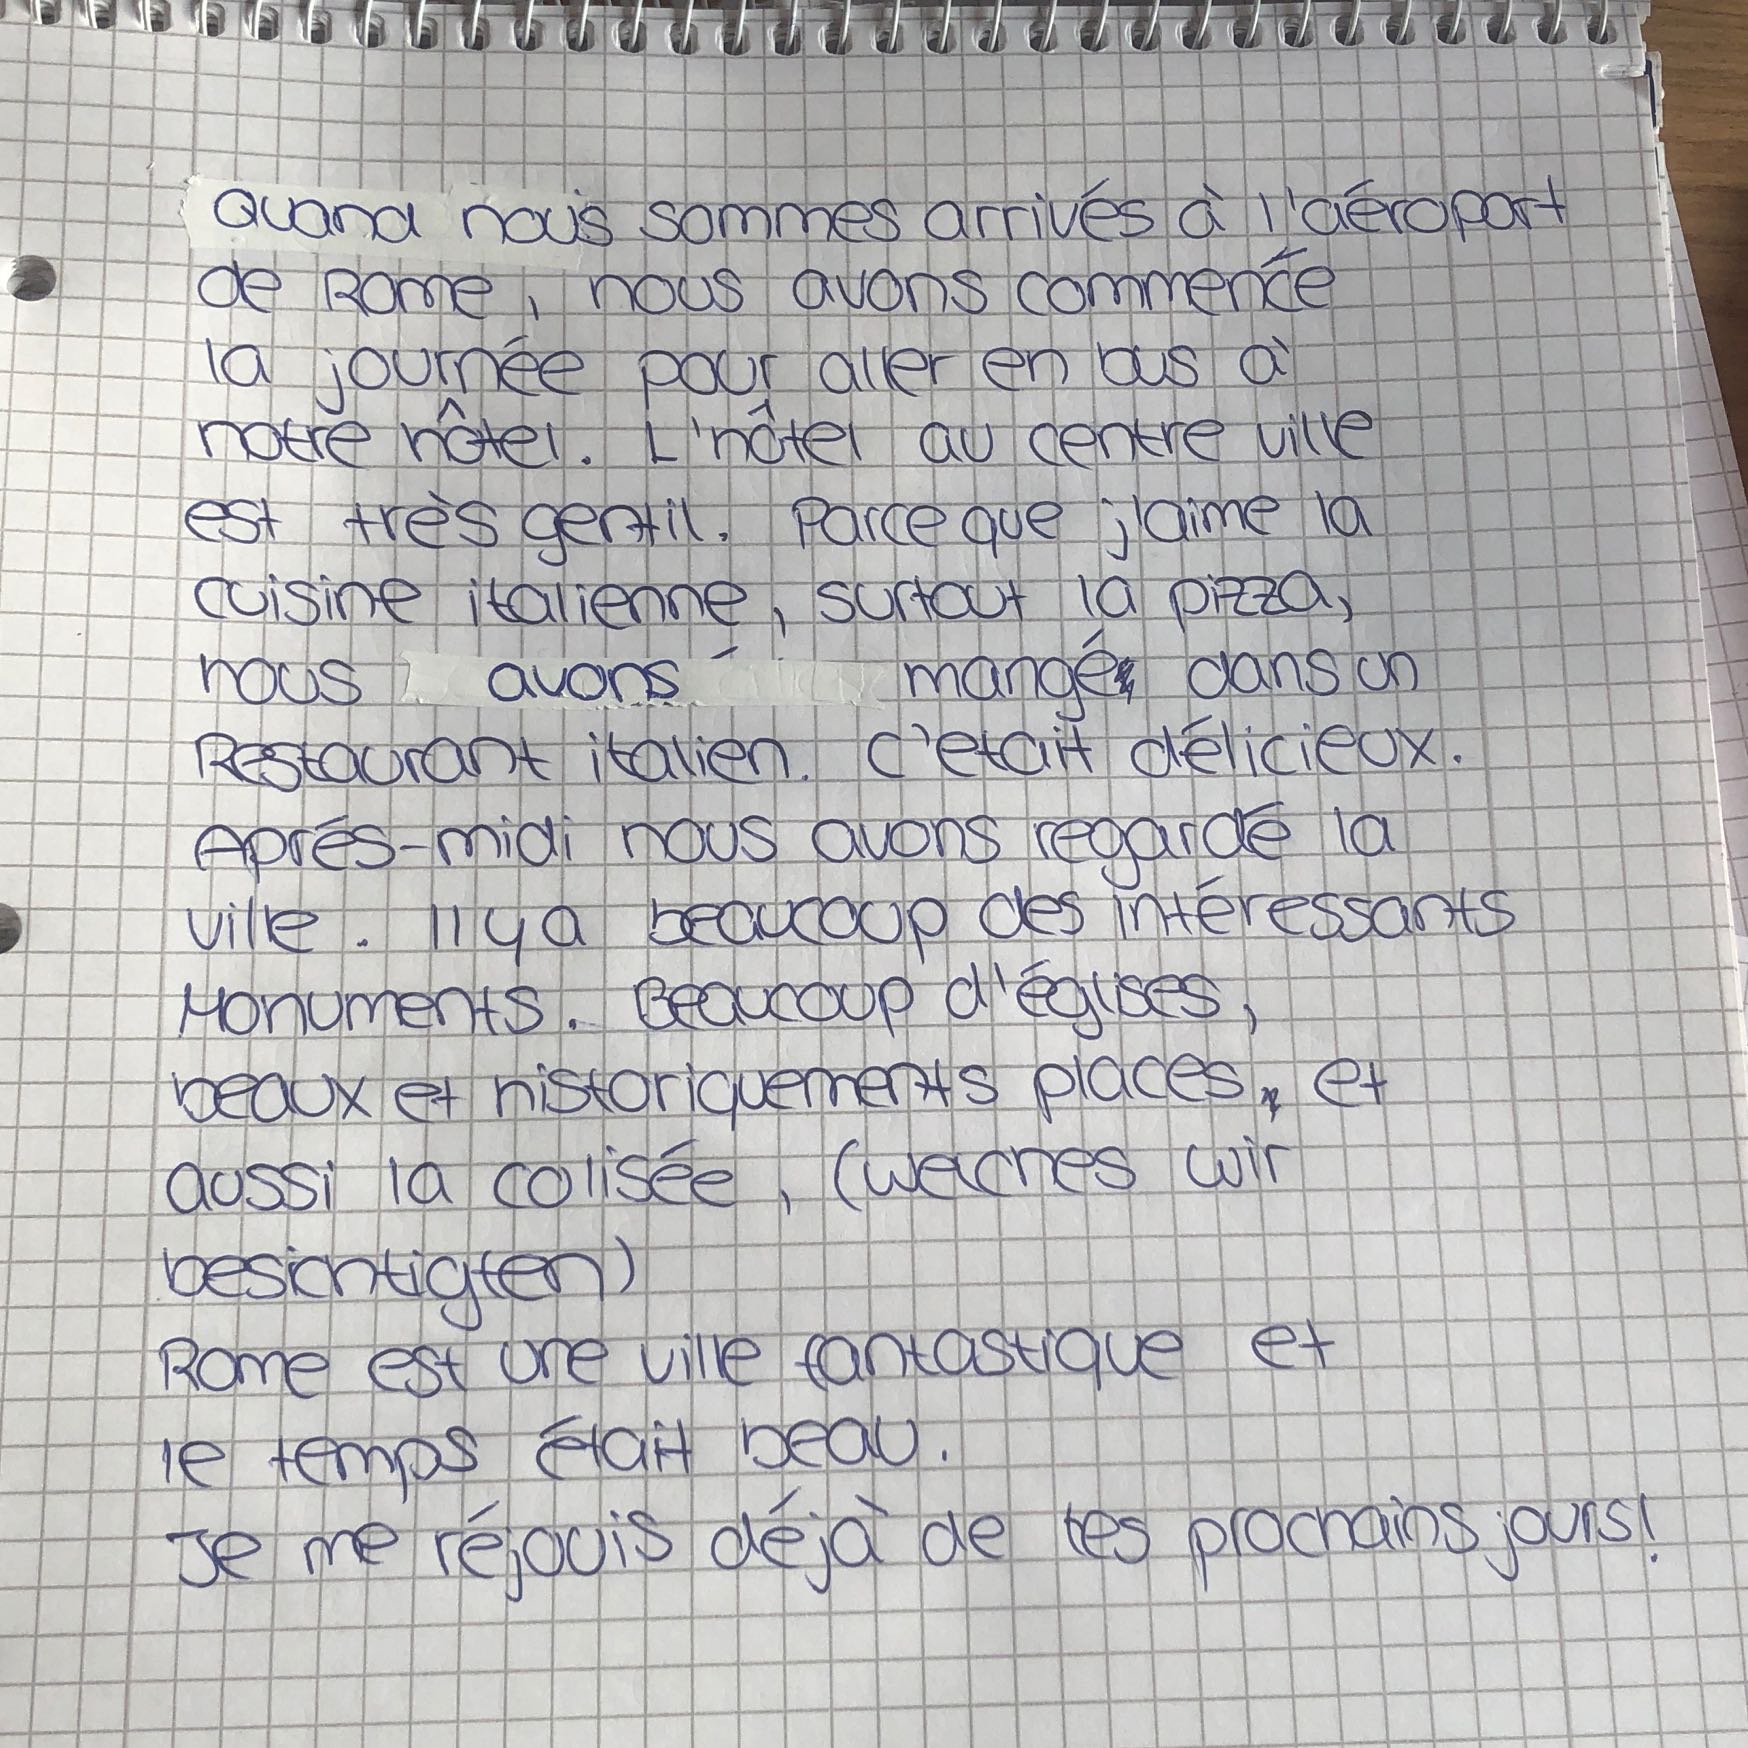 Quand nous sommes arrivés à l'aéroport
de Rome, nous avons commencée
la journée pour aller en bus à
notre hôtel. L'hôtel au centre ville
est très gentil. Parce que j'aime la
cuisine italienne, surtout la pizza,
nous avons mangé dans un
Restaurant italien. C'etait délicieux.
Aprés-midi nous avons regardé la
ville. Il y a beaucoup des intéressants
Monuments. Beaucoup d'églises,
beaux et historiquements places, et
aussi la colisée, (welches wir
besichtigten)
Rome est une ville fantastique et
le temps était beau.
Je me réjouis déjà de tes prochains jours!